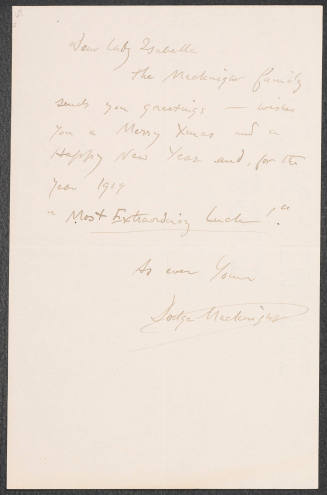 Dear Lady Isabella
The Macknight family
sends you greetings — wishes
you a Merry Xmas and a
Happy New Year and, for the
year 1919
"Most Extraordinary Luck!"
As ever Yours
Dodge Macknight